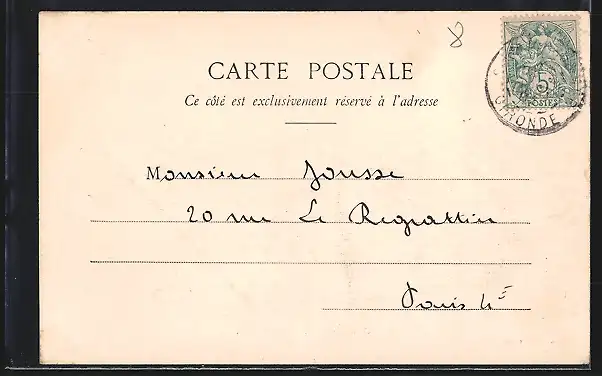 8
CARTE POSTALE
Ce côté est exclusivement réservé à l'adresse
5
POSTES
GIRONDE
Monsieur Jousse
20 rue Le Regrattier
Paris 4E